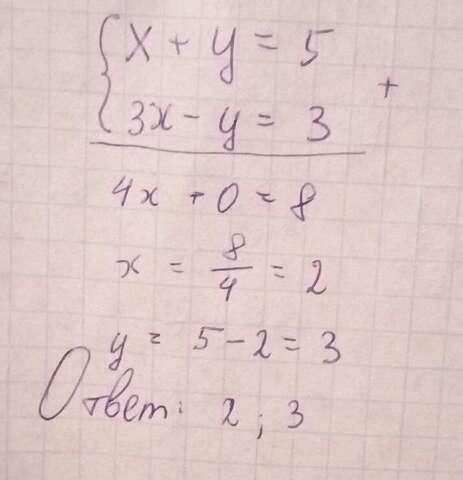 { x + y = 5
3x - y = 3 +
4x + 0 = 8
x = 8/4 = 2
y = 5 - 2 = 3
Ответ: 2 ; 3